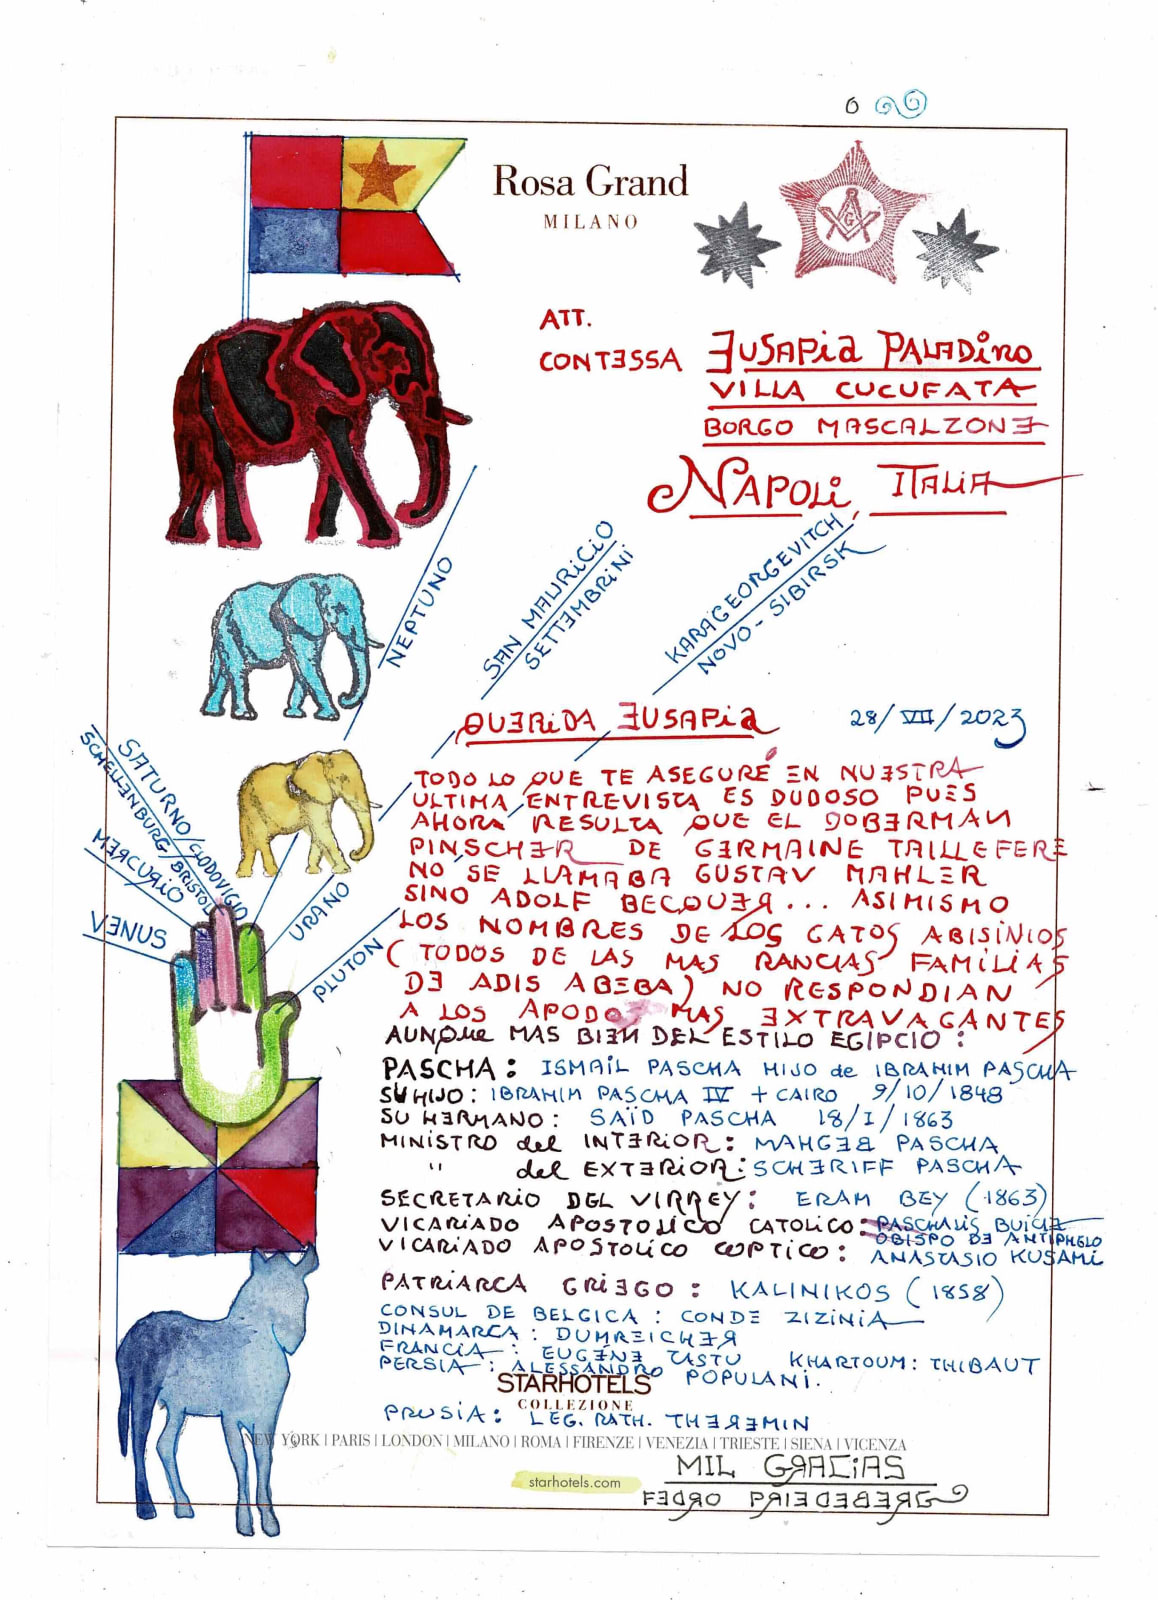 Rosa Grand
MILANO
G
ATT.
CONTESSA EUSAPIA PALADINO
VILLA CUCUFATA
BORGO MASCALZONE
NAPOLI, ITALIA
NEPTUNO
SAN MAURICIO
SETTEMBRINI
KARAGEORGEVITCH
NOVO-SIBIRSK
QUERIDA EUSAPIA 28/VII/2023
TODO LO QUE TE ASEGURÉ EN NUESTRA
ULTIMA ENTREVISTA ES DUDOSO PUES
AHORA RESULTA QUE EL DOBERMAN
PINSCHER DE GERMAINE TAILLEFERE
NO SE LLAMABA GUSTAV MAHLER
SINO ADOLF BECQUER... ASIMISMO
LOS NOMBRES DE LOS GATOS ABISINIOS
(TODOS DE LAS MAS RANCIAS FAMILIAS
DE ADIS ABEBA) NO RESPONDIAN
A LOS APODOS MAS EXTRAVAGANTES
AUNQUE MAS BIEN DEL ESTILO EGIPCIO:
SATURNO/CLODOVIGIO
SCHELLENBURG/BRISTOL
MERCURIO
VENUS
URANO
PLUTON
PASCHA: ISMAIL PASCHA HIJO de IBRAHIM PASCHA
SU HIJO: IBRAHIM PASCHA IV + CAIRO 9/10/1848
SU HERMANO: SAÏD PASCHA 18/I/1863
MINISTRO del INTERIOR: MAHGEB PASCHA
" del EXTERIOR: SCHERIFF PASCHA
SECRETARIO DEL VIRREY: ERAM BEY (1863)
VICARIADO APOSTOLICO CATOLICO: PASCHALIS
OBISPO DE ANTIPHELO
VICARIADO APOSTOLICO COPTICO: ANASTASIO KUSAMI
PATRIARCA GRIEGO: KALINIKOS (1858)
CONSUL DE BELGICA: CONDE ZIZINIA
DINAMARCA: DUMREICHER
FRANCIA: EUGÉNE TASTU KHARTOUM: THIBAUT
PERSIA: ALESSANDRO POPULANI.
STARHOTELS
COLLEZIONE
PRUSIA: LEG. RATH. THEREMIN
NEW YORK | PARIS | LONDON | MILANO | ROMA | FIRENZE | VENEZIA | TRIESTE | SIENA | VICENZA
MIL GRACIAS
starhotels.com
FEDRO PRIEDEBERG